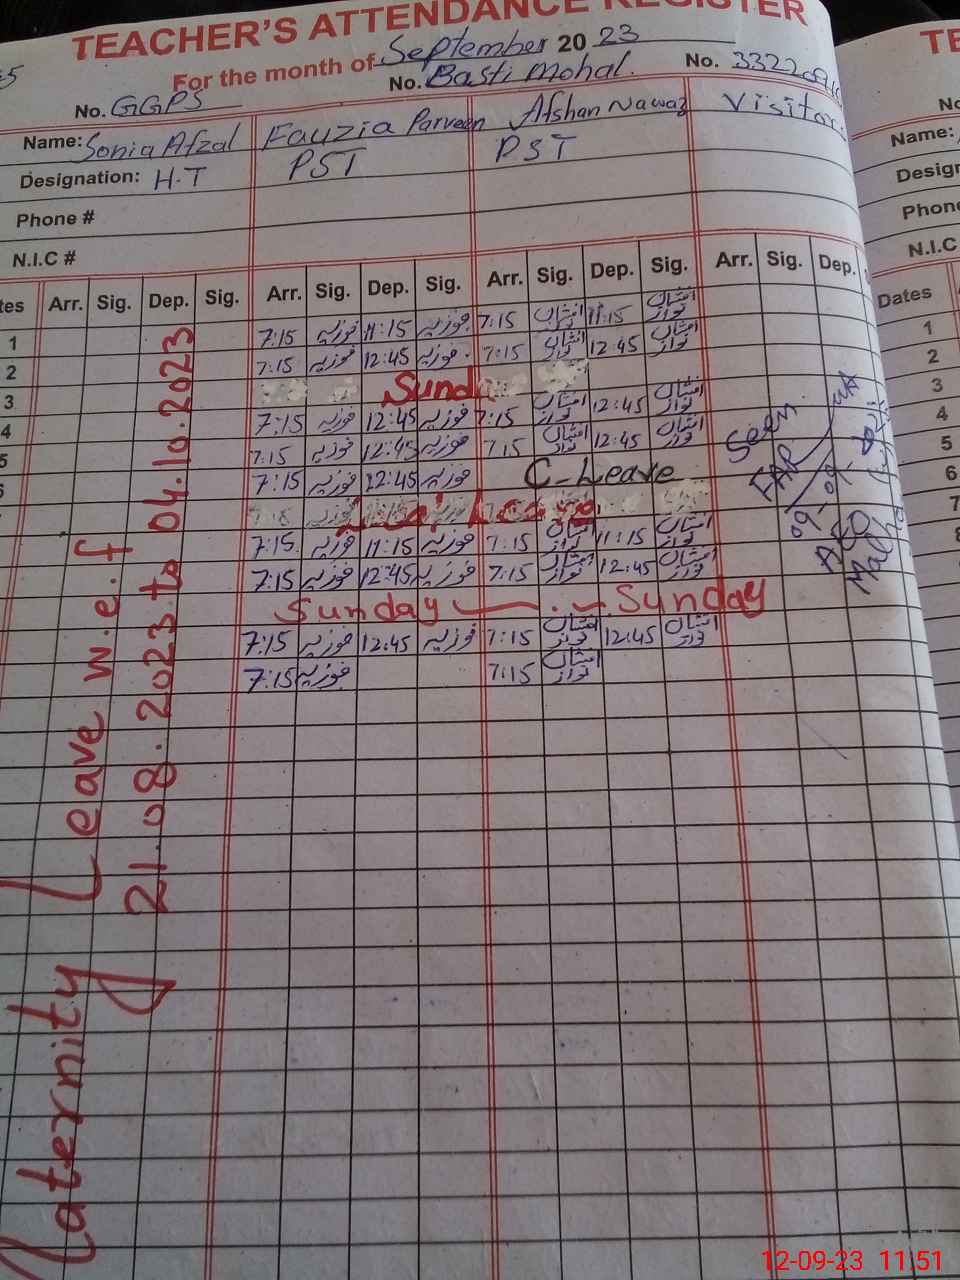 TEACHER'S ATTENDANCE REGISTER
For the month of September 20 23
No. GGPS No. Basti Mohal. No.
Name: Sonia Afzal Fauzia Parveen Afshan Nawaz Visitor
Designation: H.T PST PST
Phone #
N.I.C #
Arr. Sig. Dep. Sig. Arr. Sig. Dep. Sig. Arr. Sig. Dep. Sig. Arr. Sig. Dep.
1 7:15 فوزیہ 11:15 فوزیہ 7:15 افشاں نواز 11:15 افشاں نواز
2 7:15 فوزیہ 12:45 فوزیہ 7:15 افشاں نواز 12:45 افشاں نواز
3
4 7:15 فوزیہ 12:45 فوزیہ 7:15 افشاں نواز 12:45 افشاں نواز
5 7:15 فوزیہ 12:45 فوزیہ 7:15 افشاں نواز 12:45 افشاں نواز
7:15 فوزیہ 12:45 فوزیہ C-Leave
7:15 فوزیہ 11:15 فوزیہ 7:15 افشاں نواز 11:15 افشاں نواز
7:15 فوزیہ 12:45 فوزیہ 7:15 افشاں نواز 12:45 افشاں نواز
Sunday Sunday
7:15 فوزیہ 12:45 فوزیہ 7:15 افشاں نواز 12:45 افشاں نواز
7:15 فوزیہ 7:15 افشاں نواز
Maternity Leave w.e.f
21.08.2023 to 04.10.2023
Seen
AEO
Name:
Phone
N.I.C
Dates
1
2
3
4
5
6
7
8
12-09-23 11:51